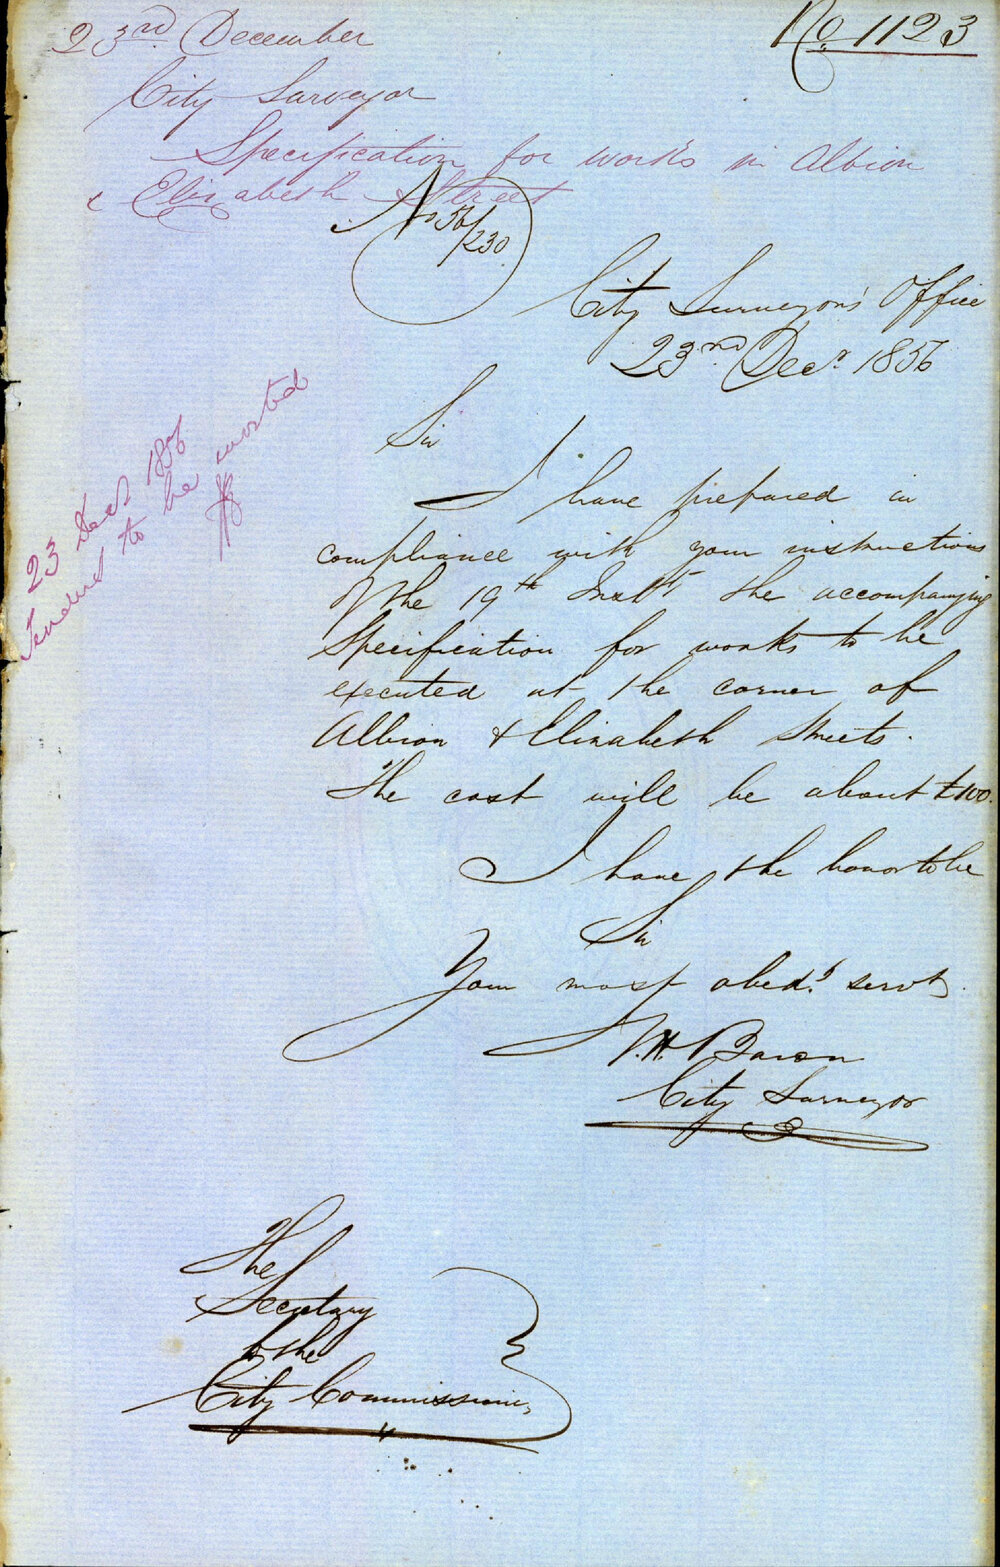 23rd December
No. 1123
City Surveyor
Specification for works in Albion
& Elizabeth Street
No 56/230.
City Surveyor's Office
23rd Decr. 1856
Sir
I have prepared in
compliance with your instructions
of the 19th Inst the accompanying
Specification for works to be
executed at the corner of
Albion & Elizabeth Streets.
The cost will be about £100.
I have the honor to be
Sir
Your most obedt. servt.
City Surveyor
23 Decr 1856
Tenders to be invited
The
Secretary
to the
City Commissioners